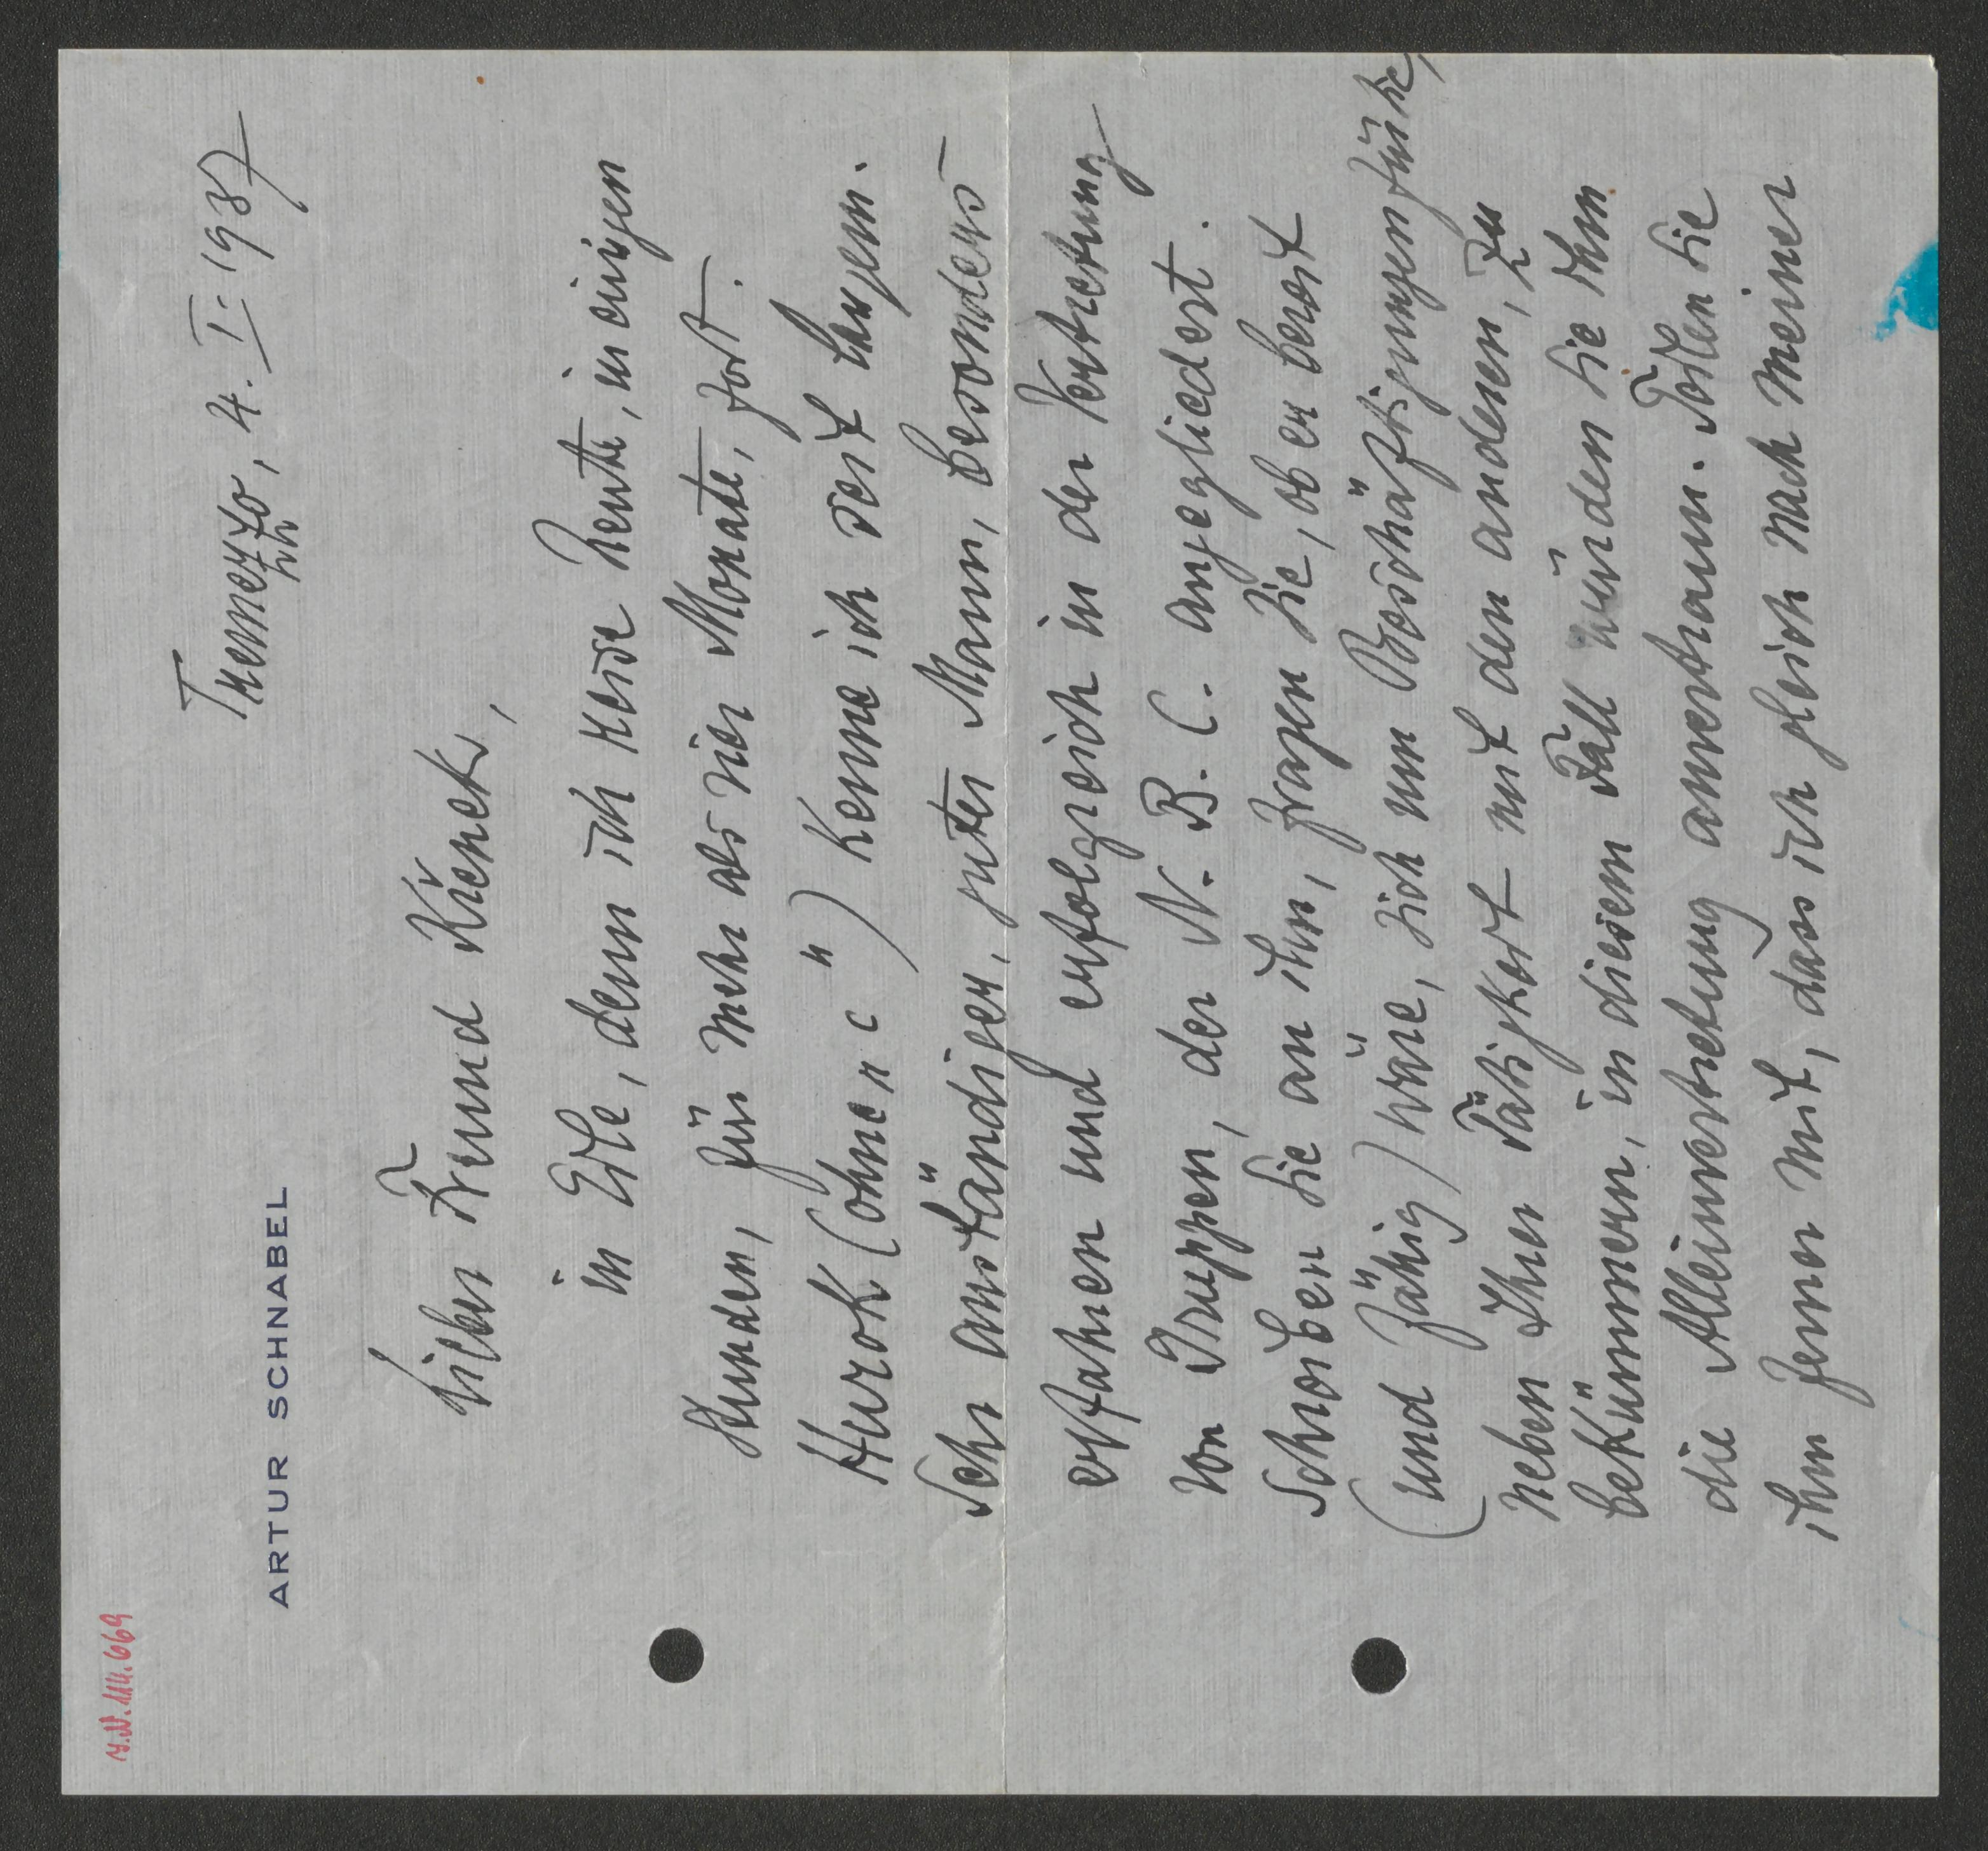 I.N. 114.669
ARTUR SCHNABEL
Tremezzo, 4. I. 1937
Lieber Freund Křenek,
in Eile, denn ich reise heute, in einigen
Stunden, für mehr als vier Monate, fort.
Hurok (ohne „c“) kenne ich seit langem.
Sehr anständiger, guter Mann, besonders
erfahren und erfolgreich in der Vertretung
von Truppen, der N. B. C. angegliedert.
Schreiben Sie an ihn, fragen Sie, ob er bereit
(und fähig) wäre, sich um Beschäftigungen für Sie,
neben Ihrer Tätigkeit mit den anderen, zu
bekümmern, in diesem Fall würden Sie ihm
die Alleinvertretung anvertraun. Teilen Sie
ihm ferner mit, dass ich gleich nach meiner